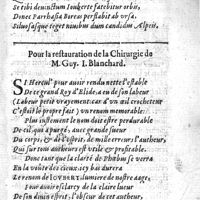 Se tibi deuinctum Ioukerte fatebitur orbis,
Donec Parrhasia Boreas perflabit ab vrsa.
Siluosasque teget niuibus dum candidus Alpeis.
Pour la restauration de la Chirurgie de
M. Guy. I. Blanchard.
SI Hercul' pour auoir rendu nette l'estable
De ce grand Roy d'Elide, a eu de son labeur
(Labeur petit vrayement: car d'vn acul crocheteur
C'estoit le propre fait) vn renom memorable:
Plus iustement le nom doit estre perdurable
De cil, qui a purgé, auec grande sueur
Du corps, & de l'esprit, de mille erreurs l'autheur,
Qui sur tous autheurs est vtile & profitable.
Donc tant que la clarté de Phœbus se verra
En la voute des cieux: icy bas durera
Le renom de IOVBERT lumiere de nostre aage,
Pour auoir esclarcy de la claire lueur
De son diuin esprit, l'obscur de cet autheur,